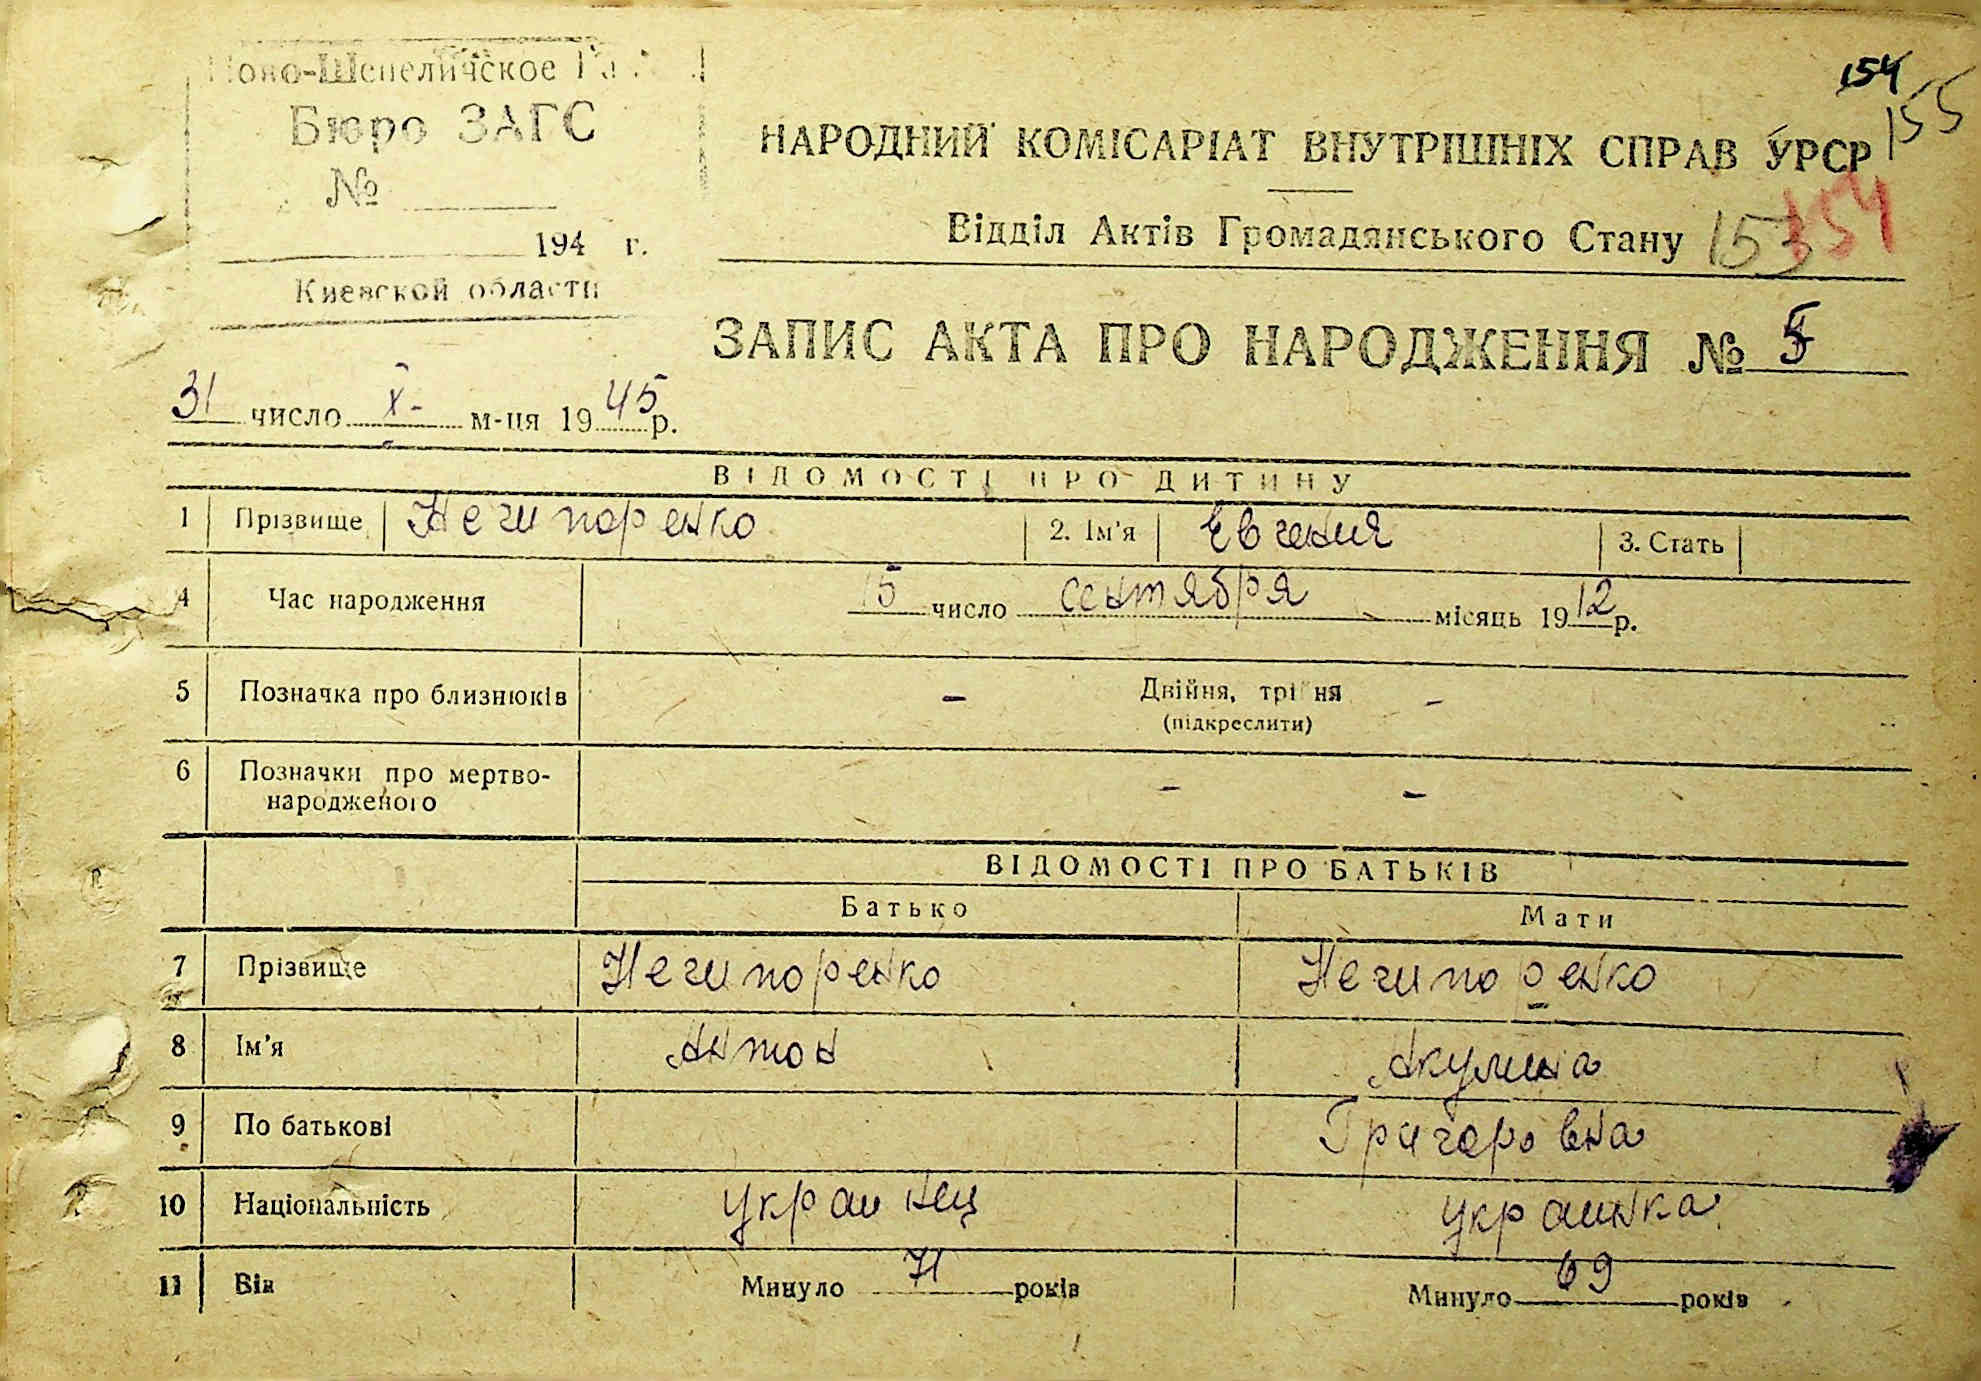 Ново-Шепеличское
Бюро ЗАГС
№
194 г.
Киевской области
154
155
НАРОДНИЙ КОМІСАРІАТ ВНУТРІШНІХ СПРАВ УРСР
Відділ Актів Громадянського Стану 153 154
ЗАПИС АКТА ПРО НАРОДЖЕННЯ № 5
31 число X м-ця 1945 р.
ВІДОМОСТІ ПРО ДИТИНУ
1 Прізвище Нечипоренко 2. Ім'я Евгения 3. Стать
4 Час народження 15 число сентября місяць 1912 р.
5 Позначка про близнюків - Двійня, трійня -
(підкреслити)
6 Позначки про мертво- - -
народженого
ВІДОМОСТІ ПРО БАТЬКІВ
Батько Мати
7 Прізвище Нечипоренко Нечипоренко
8 Ім'я Антон Акулина
9 По батькові Григоровна
10 Національність украинец украинка
11 Вік Минуло 71 років Минуло 69 років